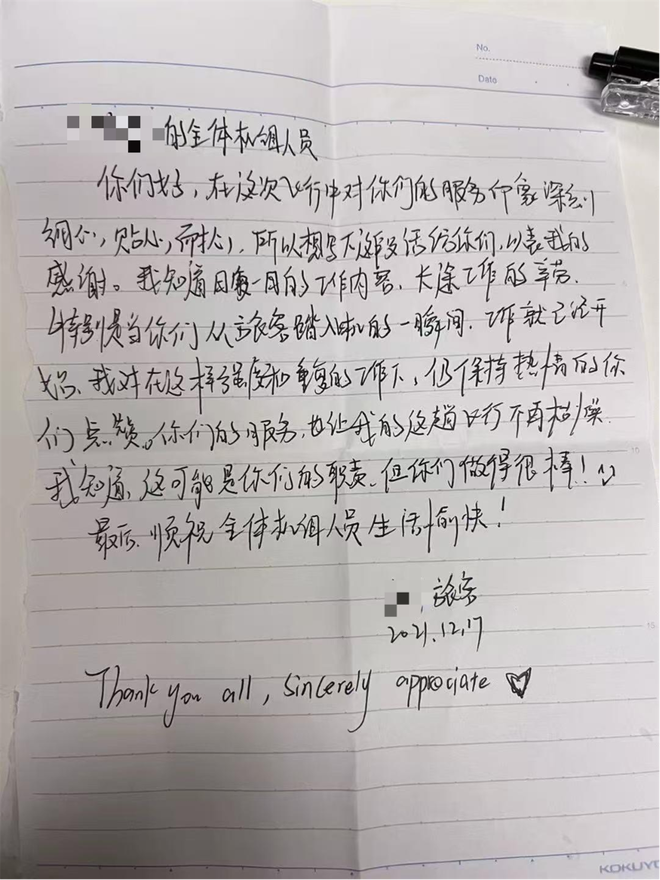 No.
Date
的全体机组人员
你们好,在这次飞行中对你们的服务印象深刻
细心,贴心,而热心,所以想写下这段话给你们,以表我的
感谢。我知道日复一日的工作内容,长途工作的辛苦,
特别是当你们从旅客踏入机的一瞬间,工作就已经开
始、我对在这样强度和重复的工作下,仍保持热情的你
们点赞。你们的服务,也让我的这趟飞行不再枯燥.
我知道,这可能是你们的职责,但你们做得很棒!
最后,顺祝全体机组人员生活愉快!
旅客
2021.12.17
Thank you all, sincerely approciate
KOKUYO